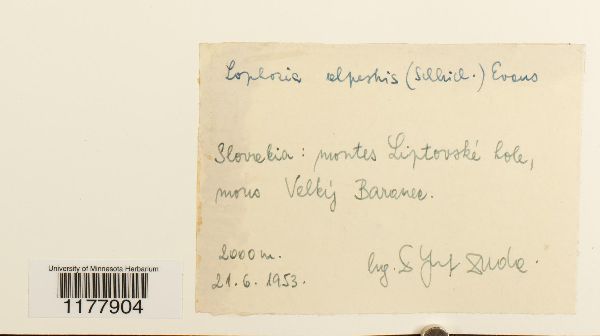 Lophozia alpestris (Schleich.) Evans
Slovakia: montes Liptovské hole,
mons Velký Baranec.
2000 m.
21.6.1953. leg.
University of Minnesota Herbarium
1177904